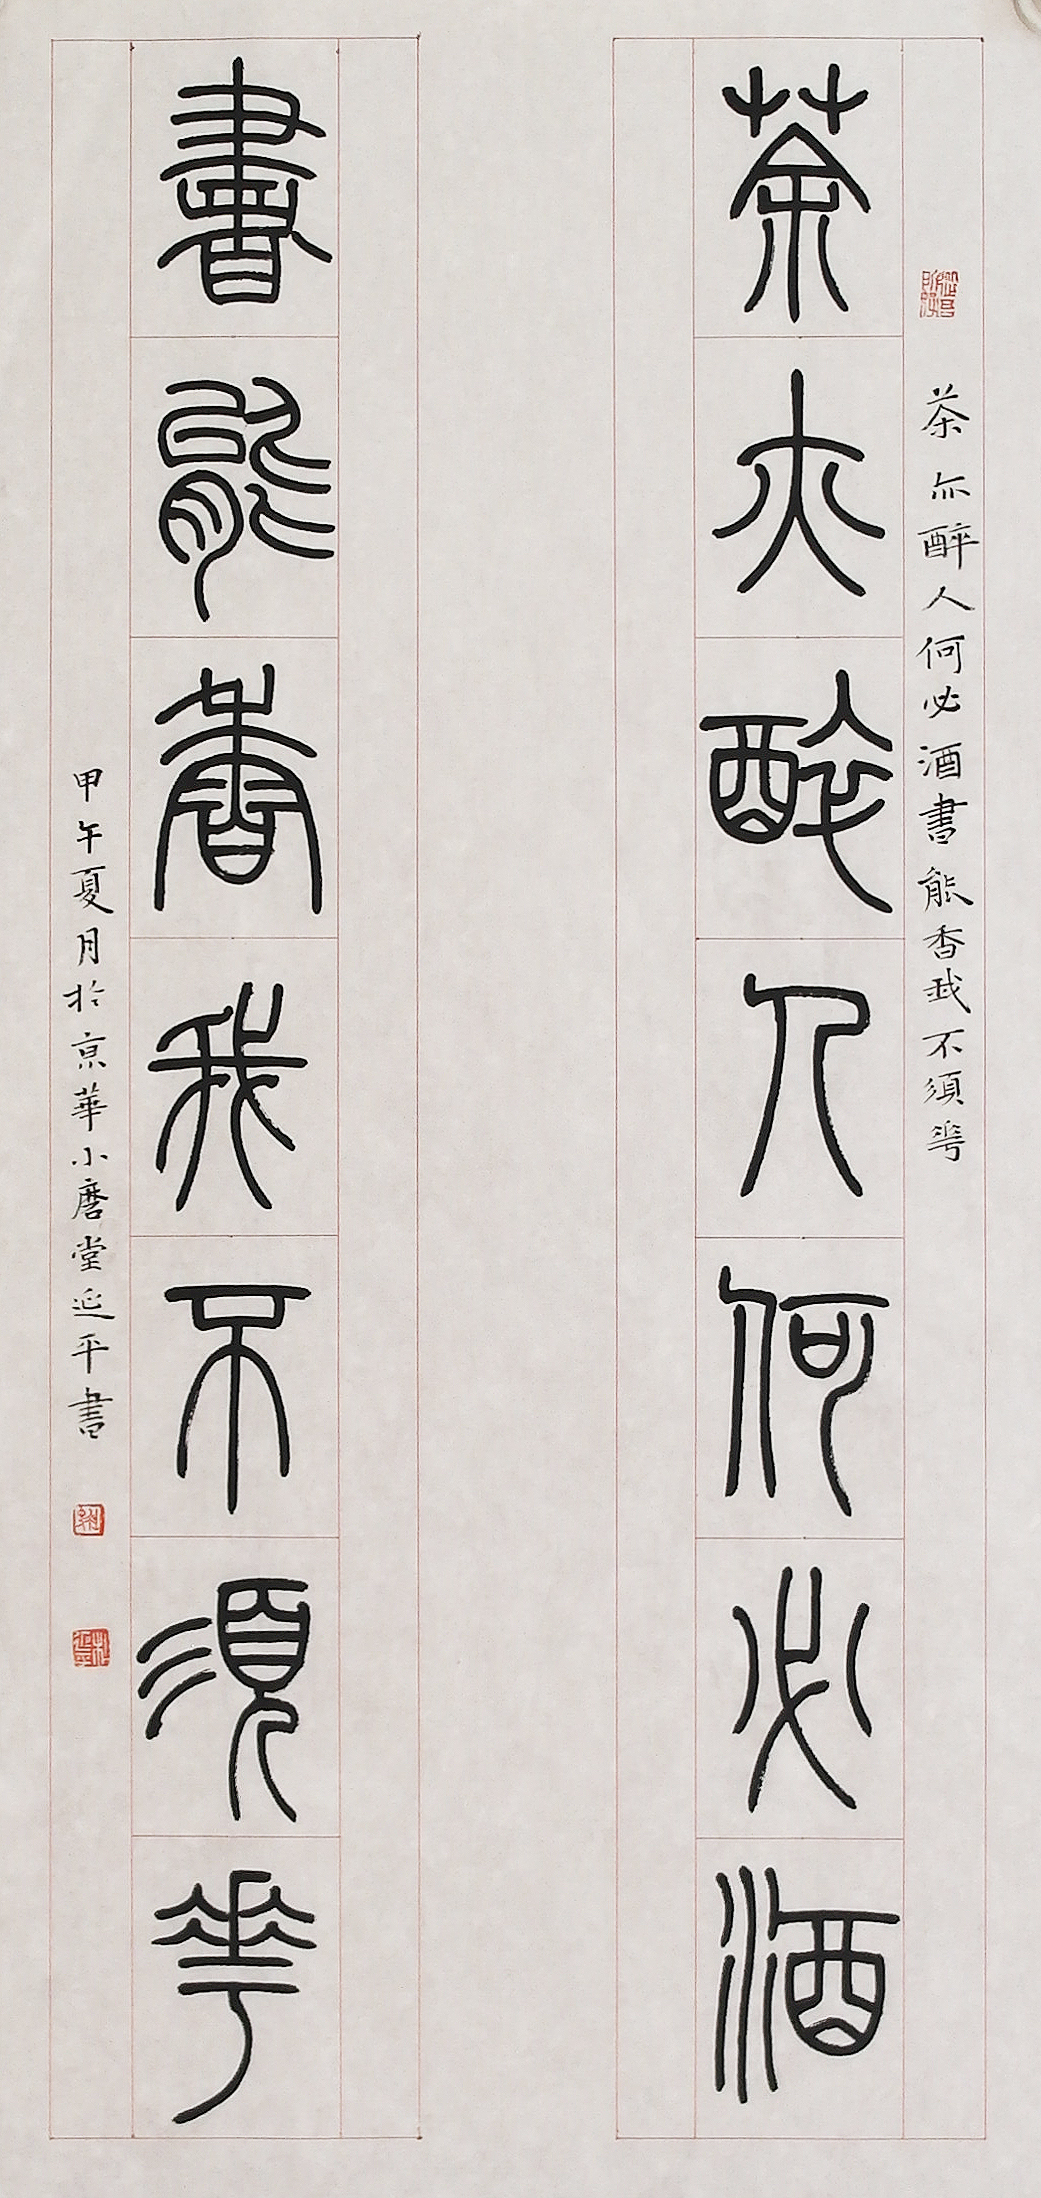 茶亦醉人何必酒
茶亦醉人何必酒書能香我不須花
書能香我不須花
甲午夏月於京華小磨堂延平書